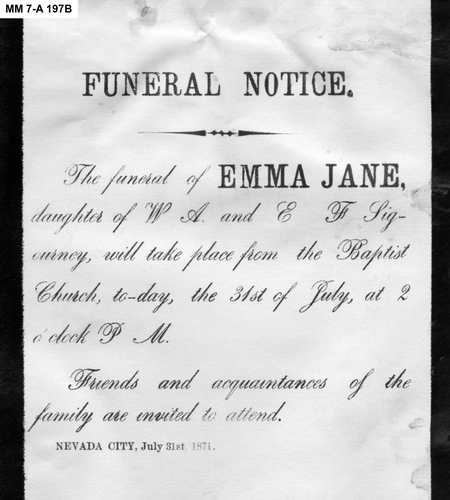 MM 7-A 197B
FUNERAL NOTICE.
The funeral of EMMA JANE,
daughter of W A. and E F Sig-
ourney, will take place from the Baptist
Church, to-day, the 31st of July, at 2
o'clock P M.
Friends and acquaintances of the
family are invited to attend.
NEVADA CITY, July 31st 1871.